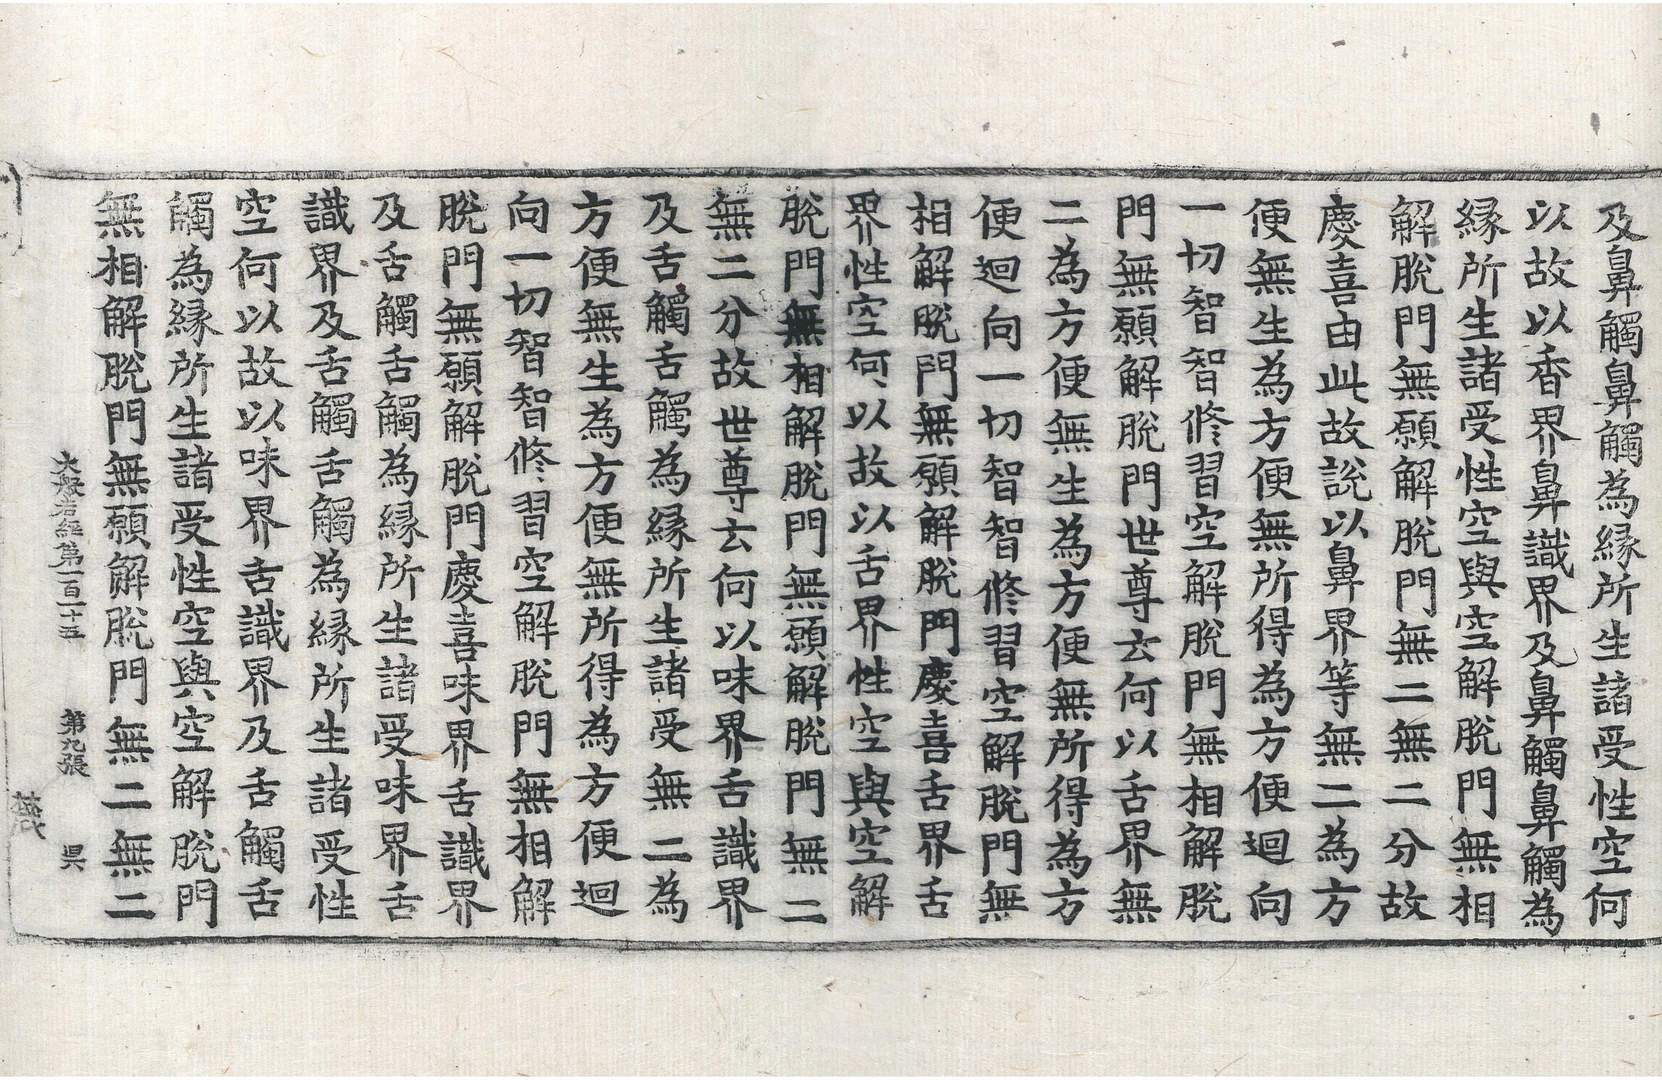 及鼻觸鼻觸為縁所生諸受性空何
以故以香界鼻識界及鼻觸鼻觸為
縁所生諸受性空與空解脫門無相
解脫門無願解脫門無二無二分故
慶喜由此故說以鼻界等無二為方
便無生為方便無所得為方便迴向
一切智智修習空解脫門無相解脫
門無願解脫門世尊云何以舌界無
二為方便無生為方便無所得為方
便迴向一切智智修習空解脫門無
相解脫門無願解脫門慶喜舌界舌
界性空何以故以舌界性空與空解
脫門無相解脫門無願解脫門無二
無二分故世尊云何以味界舌識界
及舌觸舌觸為縁所生諸受無二為
方便無生為方便無所得為方便迴
向一切智智修習空解脫門無相解
脫門無願解脫門慶喜味界舌識界
及舌觸舌觸為縁所生諸受味界舌
識界及舌觸舌觸為縁所生諸受性
空何以故以味界舌識界及舌觸舌
觸為縁所生諸受性空與空解脫門
無相解脫門無願解脫門無二無二
大般若經第一百一十五 第九張 昃